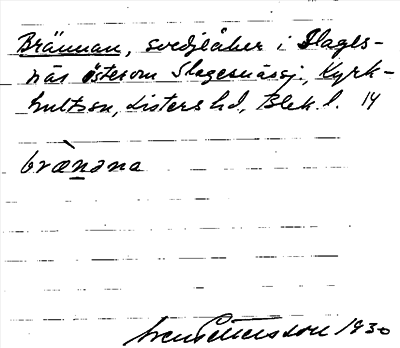 Brännan, svedjeåker i Slages-
näs öster om Slagesnässj., Kyrk-
hults sn, Listers hd, Blek. l. 14
brænəna
Sven Pettersson 1930